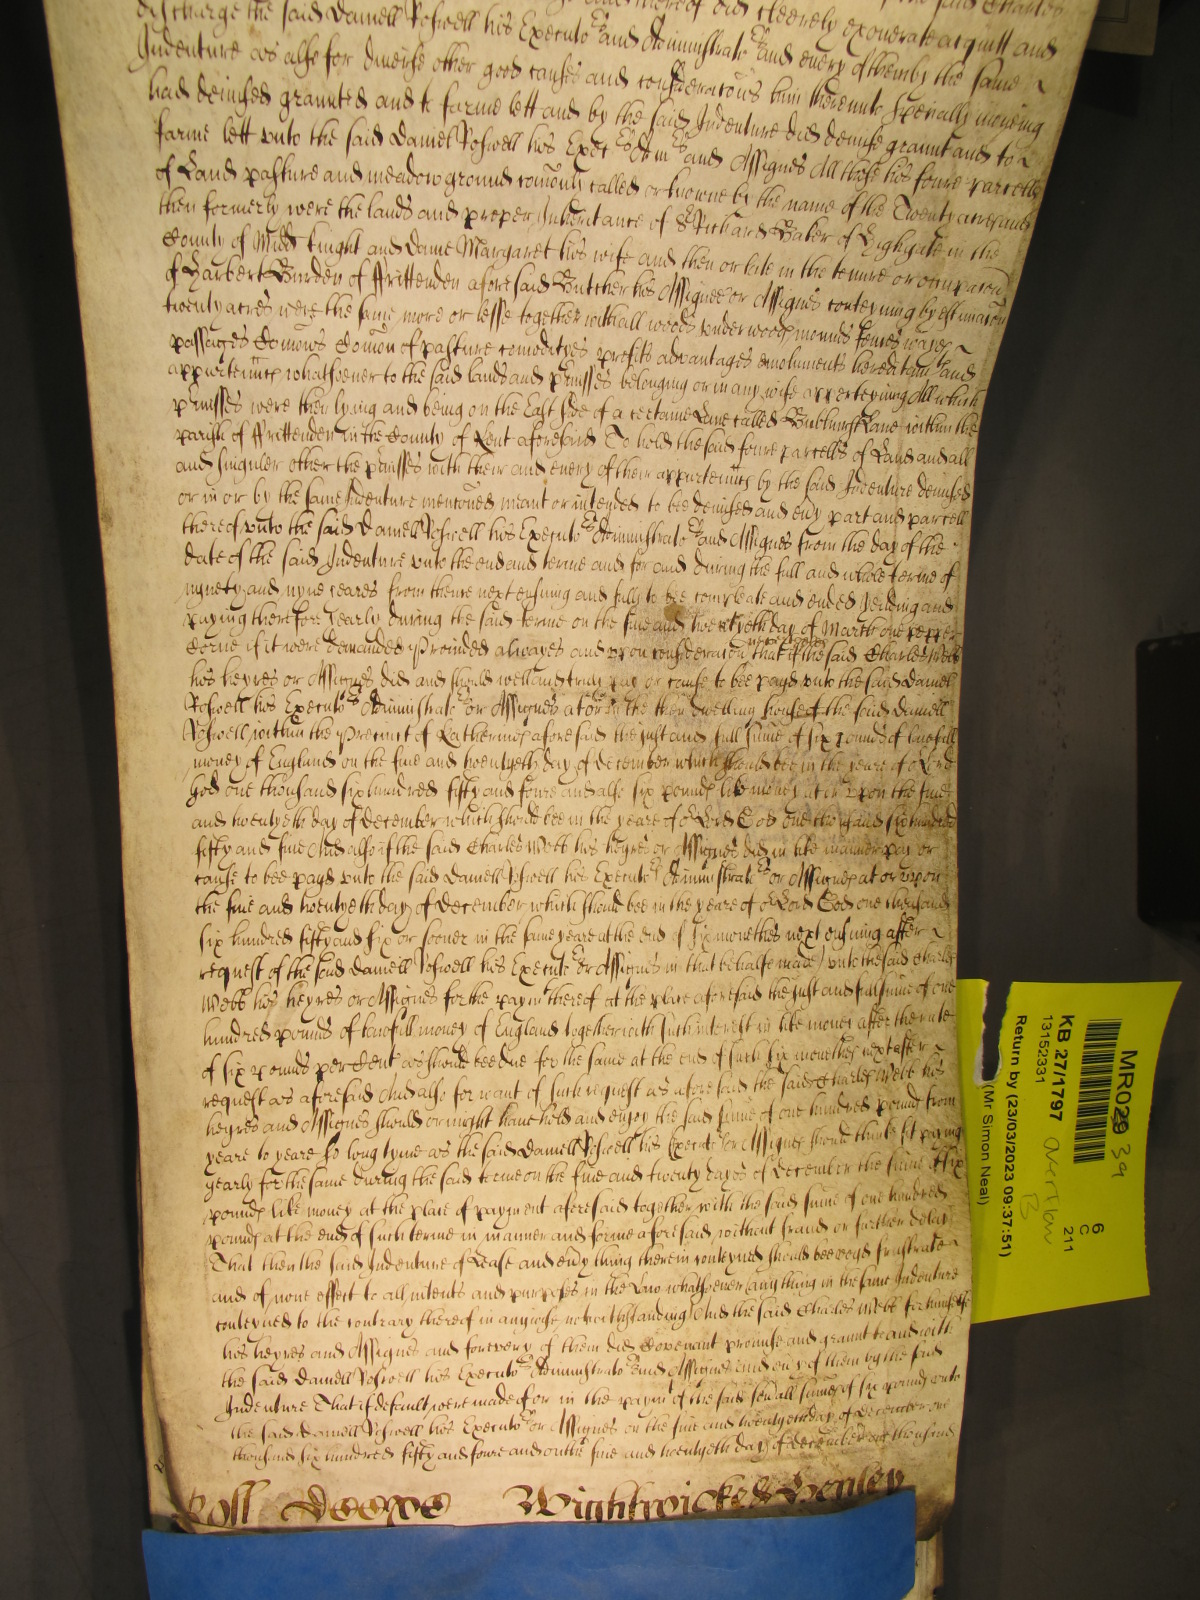 discharge the said Daniell Roswell his Executors and Administrators and every of them by the same
Indenture as also for diverse other good causes and consideracons him thereunto specially moving
had demised graunted and to farme lett and by the said Indenture did demise graunt and to
farme lett unto the said Daniel Roswell his Executors Adm and Assignes All those his foure parcells
of Land pasture and meadow ground comonly called or knowne by the name of the Twenty acres
then formerly were the lands and proper Inheritance of Sr Richard Baker of Highgate in the
County of Midd Knight and Dame Margaret his wife and then or late in the tenure or occupacon
of Harbert Burden of ffrittenden aforesaid Butcher his Assignee or Assignes conteyning by estimacon
twenty acres were the same more or lesse together with all woods underwoods mounds fences wayes
passages Comons Comon of pasture comodityes profits advantages emoluments hereditamts and
appurtenncs whatsoever to the said lands and prmisses belonging or in any wise apperteyning All which
prmisses were then lying and being on the East side of a certaine Lane called Bubhurst Lane within the
parish of ffrittenden in the County of Kent aforesaid To hold the said foure parcells of Land and all
and singuler other the prmisses with their and every of their appurtenncs by the said Indenture demised
or in or by the same Indenture menconed meant or intended to bee demised and evy part and parcell
thereof unto the said Daniell Roswell his Executors Administrators and Assignes from the day of the
date of the said Indenture unto the end and terme and for and during the full and whole terme of
nynety and nyne yeares from thence next ensuing and fully to bee compleate and ended Yeilding and
paying therefore yearly during the said terme on the five and twentyeth day of March one pepper
Corne if it were demanded Provided alwayes and upon consideracon that if the said Charles Webb
his heyres or Assignes did and should well and truly pay or cause to bee payd unto the said Daniel
Roswell his Executors Administrators or Assignes at or in the then dwelling house of the said Daniell
Roswell within the Precinct of Katherines aforesaid the just and full sume of six pounds of lawfull
money of England on the five and twentyeth day of December which should bee in the yeare of or Lord
God one thousand six hundred fifty and foure and also six pounds like money at or upon the five
and twentyeth day of December which should bee in the yeare of or Lord God one thousand six hundred
fifty and five And also if the said Charles Webb his heyres or Assignes did in like manner pay or
cause to bee payd unto the said Daniell Roswell his Executors Administrators or Assignes at or upon
the five and twentyeth day of December which should bee in the yeare of or Lord God one thousand
six hundred fifty and six or sooner in the same yeare at the end of six monethes next ensuing after
request of the said Daniell Roswell his Executors or Assignes in that behalfe made unto the said Charles
Webb his heyres or Assignes for the paymt thereof at the place aforesaid the just and full sume of one
hundred pounds of lawfull money of England together with such interest in like money after the rate
of six pounds per Cent as should bee due for the same at the end of such six monethes next after
request as aforesaid And also for want of such request as aforesaid the said Charles Webb his
heyres and Assignes should or might have held and enjoy the said sume of one hundred pounds from
yeare to yeare so long tyme as the said Daniell Roswell his Executors or Assignes should thinke fit paying
yearly for the same during the said terme on the five and twenty dayes of December the sume of six
pounds like money at the place of payment aforesaid together with the said sume of one hundred
pounds at the end of such terme in manner and forme aforesaid without fraud or further delay
That then the said Indenture of Lease and evy thing therein conteyned should bee voyd frustrate
and of none effect to all intents and purposes in the Law whatsoever (any thing in the same Indenture
conteyned to the contrary thereof in anywise notwithstanding) And the said Charles Webb for himselfe
his heyres and Assignes and for every of them did Covenant promise and graunt to and with
the said Daniell Roswell his Executors Administrators and Assignes and evy of them by the said
Indenture That if default were made of or in the paymt of the said sevall sumes of six pounds unto
the said Daniell Roswell his Executors or Assignes on the five and twentyeth day of December one
thousand six hundred fifty and foure and on the five and twentyeth day of December one thousand
Roll Wightwicke & Henley
MR029 39
6
C
211
KB 27/1797
13152331
Overflow
B
Return by (23/03/2023 09:37:51)
(Mr Simon Neal)